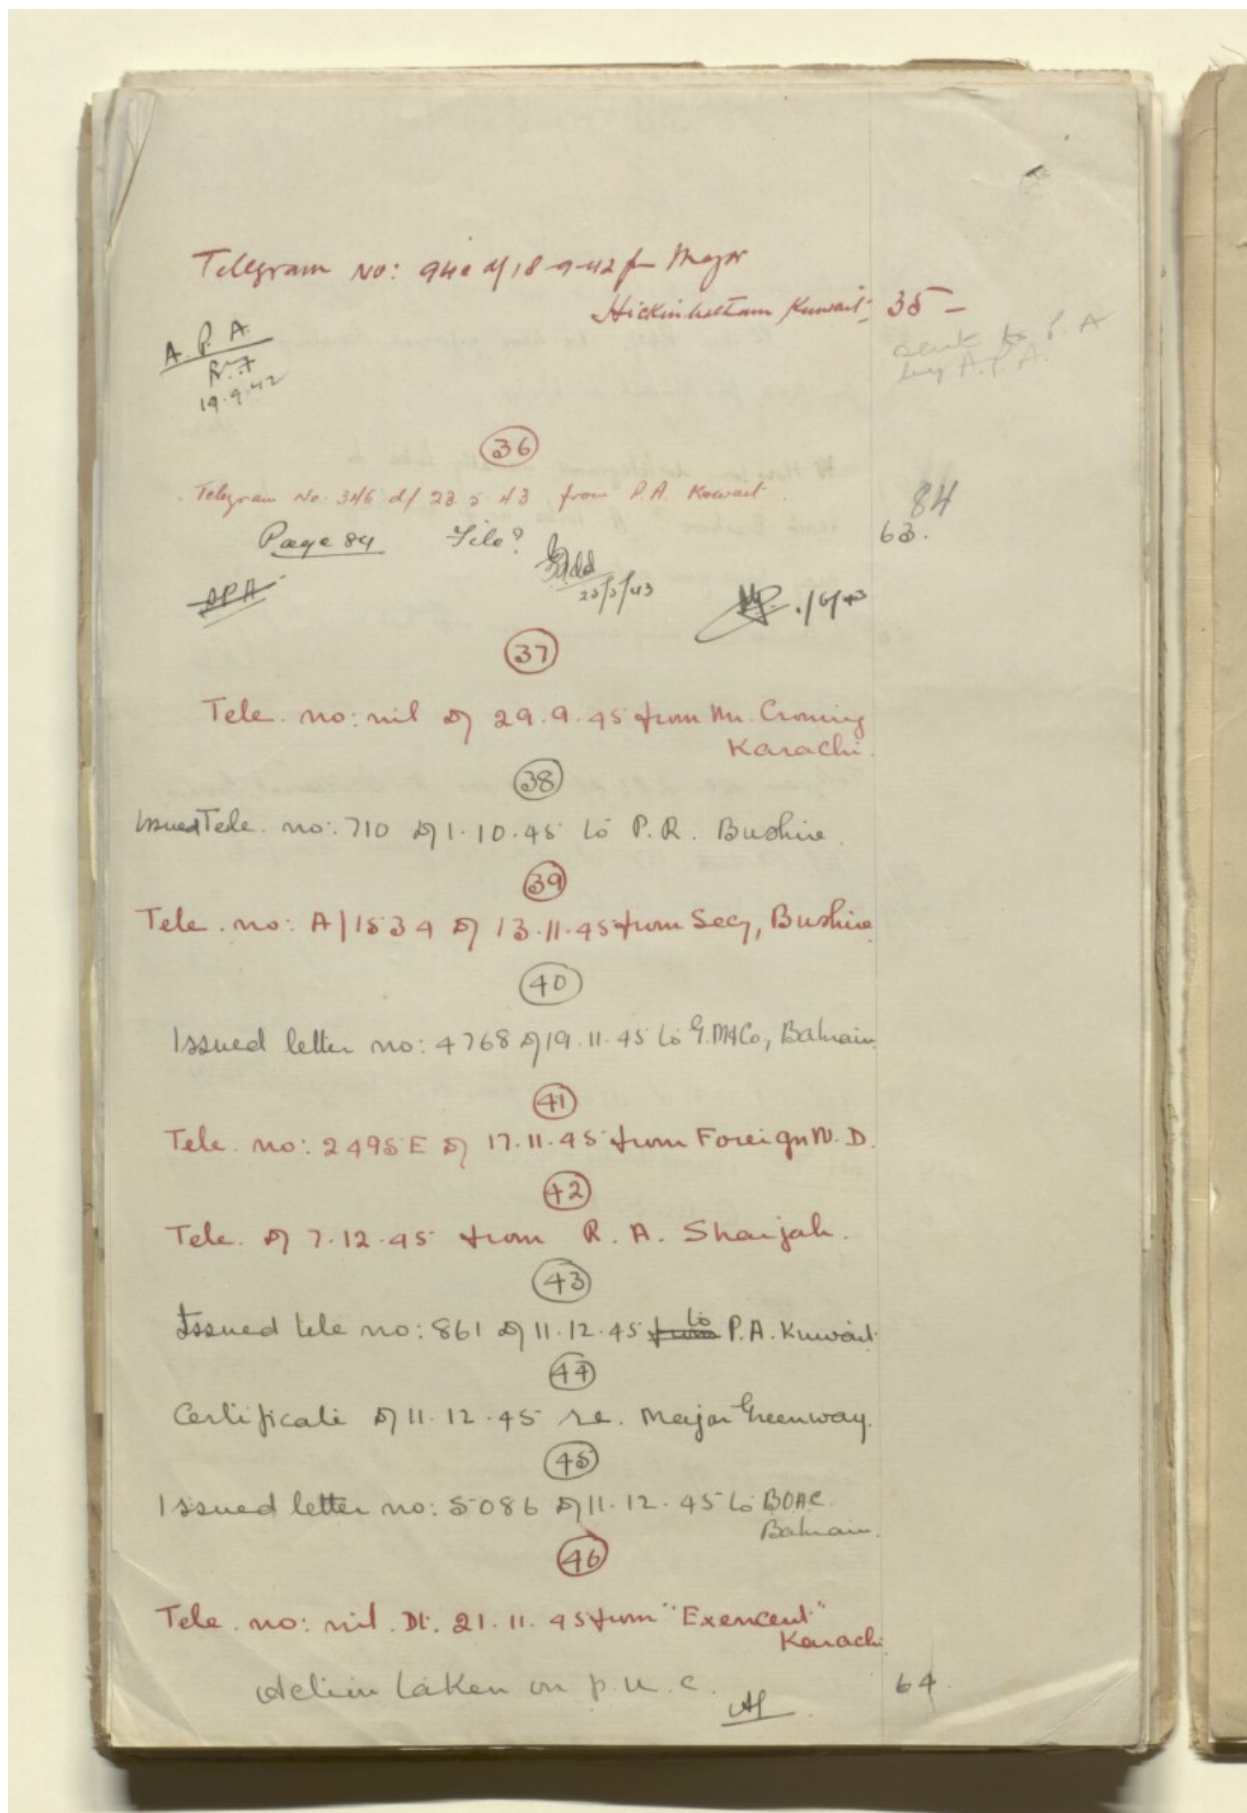 Telegram No: 940 d/ 18-9-42 fm Major
Hickinbotham Kuwait. 35 -
A. P. A.
19.9.42
sent to P. A
by A.P.A.
36
Telegram No. 346 d/ 23.5.43 from P.A. Kuwait.
84
Page 84 File?
63.
23/5/43
APA
37
Tele. no: nil d/ 29.9.45 from Mr. Croning
Karachi.
38
Issued Tele. no: 710 d/ 1.10.45 to P.R. Bushire.
39
Tele. no: A/1534 d/ 13.11.45 from Secy, Bushire.
40
Issued letter no: 4768 d/ 19.11.45 to G.M&Co, Bahrain.
41
Tele. no: 2495E d/ 17.11.45 from Foreign N. D.
42
Tele. d/ 7.12.45 from R. A. Sharjah.
43
to
Issued tele no: 861 d/ 11.12.45 from P.A. Kuwait.
44
Certificate d/ 11.12.45 re. Major Greenway.
45
Issued letter no: 5086 d/ 11.12.45 to BOAC.
Bahrain.
46
Tele. no: nil. Dt. 21.11.45 from "Exencent"
Karachi
Action taken on p. u. c.
64.